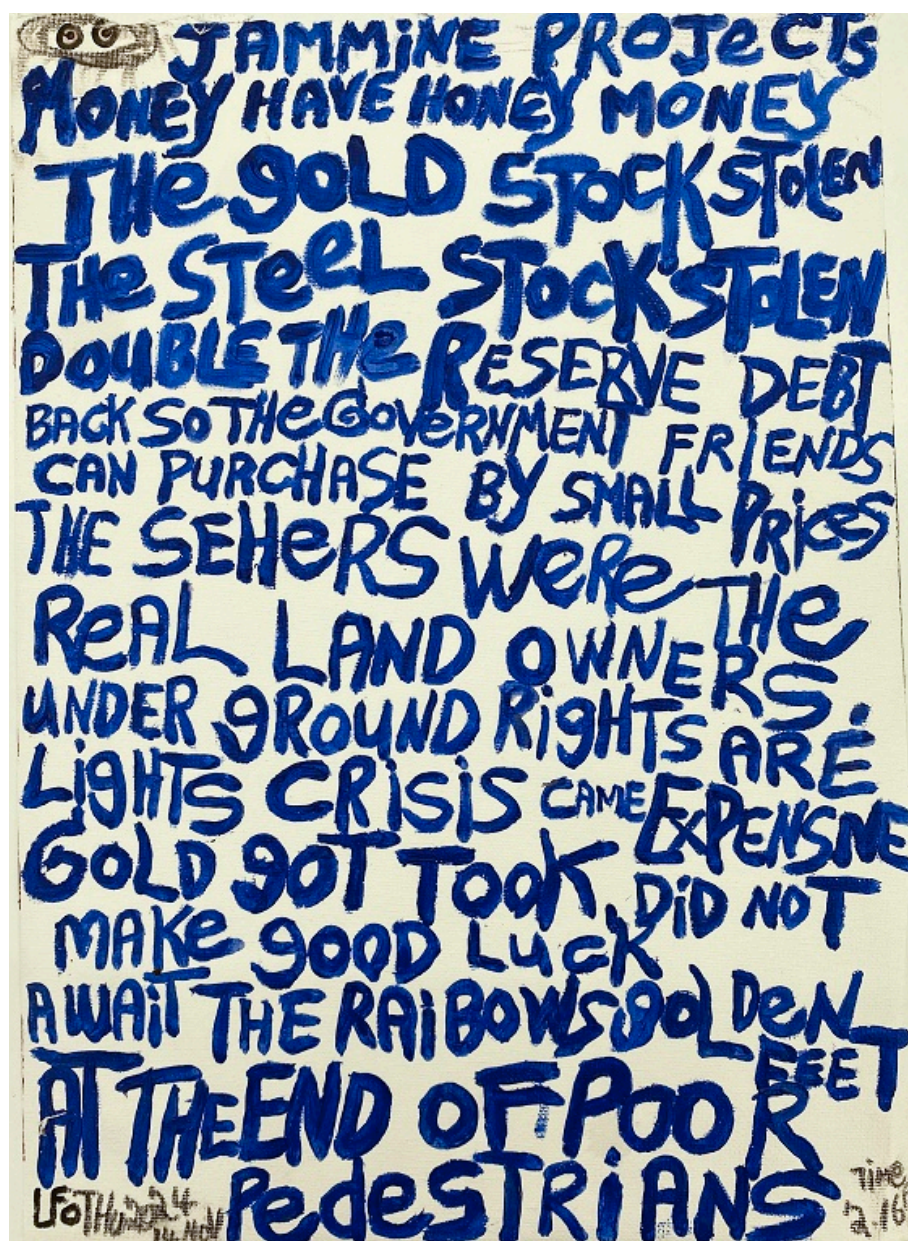 JAMMiNE PROJeCTs
MONEY HAVE HONEY MONEY
THe gOLD STOCK STOLEN
THe STeeL STOCK STOLEN
DOUBLE THe RESERVE DEBT
BACK SO THe GOVeRNMENT FRIENDS
CAN PURCHASE BY SMALL PRiceS
THE SEHeRS WeRe THe
ReAL LAND OWNERS.
UNDER gROUND RigHTS ARE
LigHTS CRiSiS CAME EXPENSNE
GOLD gOT TOOK, DiD NOT
MAKe gOOD LucK
AWAiT THE RAiBOWS gOLDeN
FEET
AT THE END OF POOR
PedeSTRiANS
LFO THU 24 14 NOV
TiME 2.16